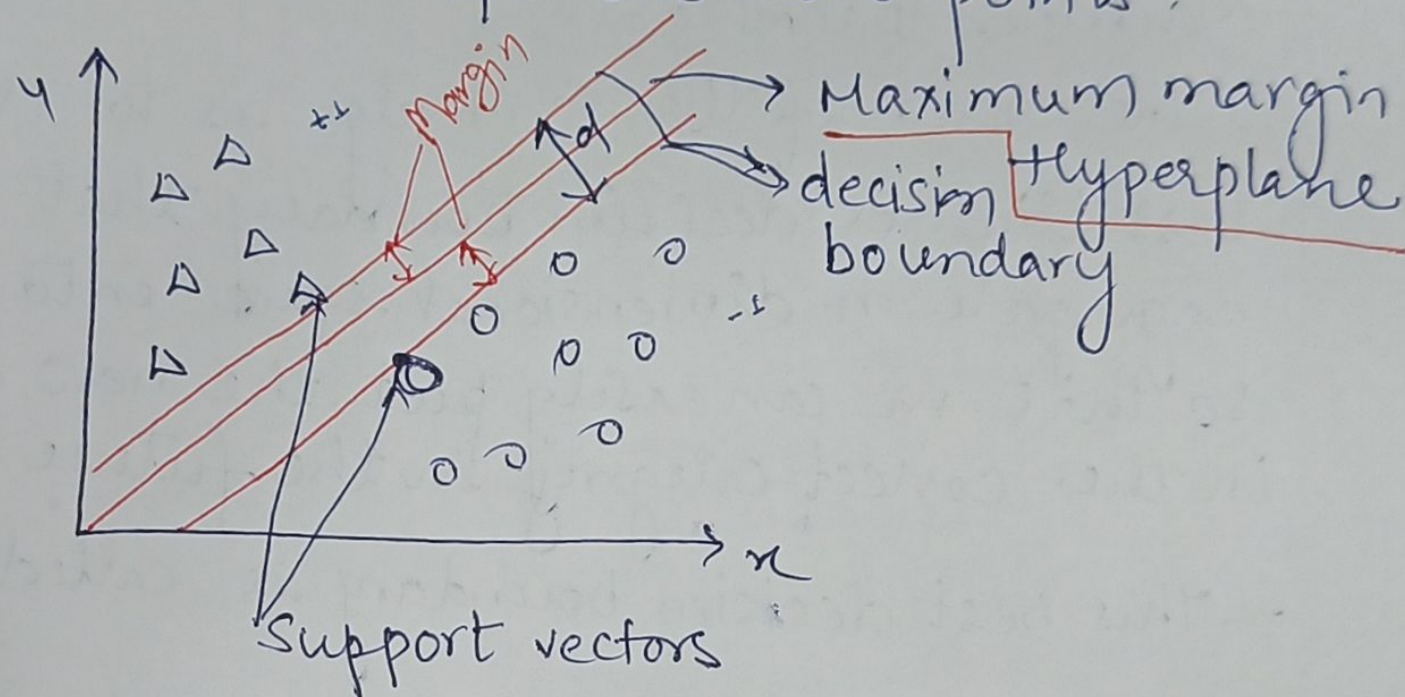 points.
y
++
Margin
d
Maximum margin
Hyperplane
decision
boundary
-1
x
Support vectors